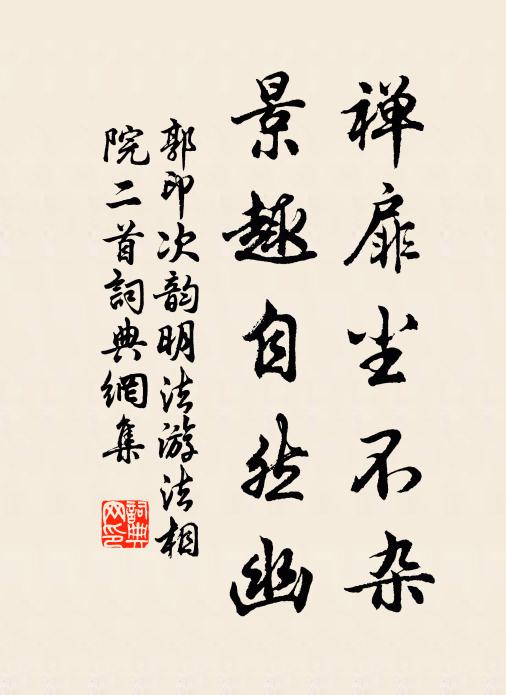 禅扉尘不杂
景趣自然幽
郭印次韵明法游法相
院二首詞典網集
詞典
网印